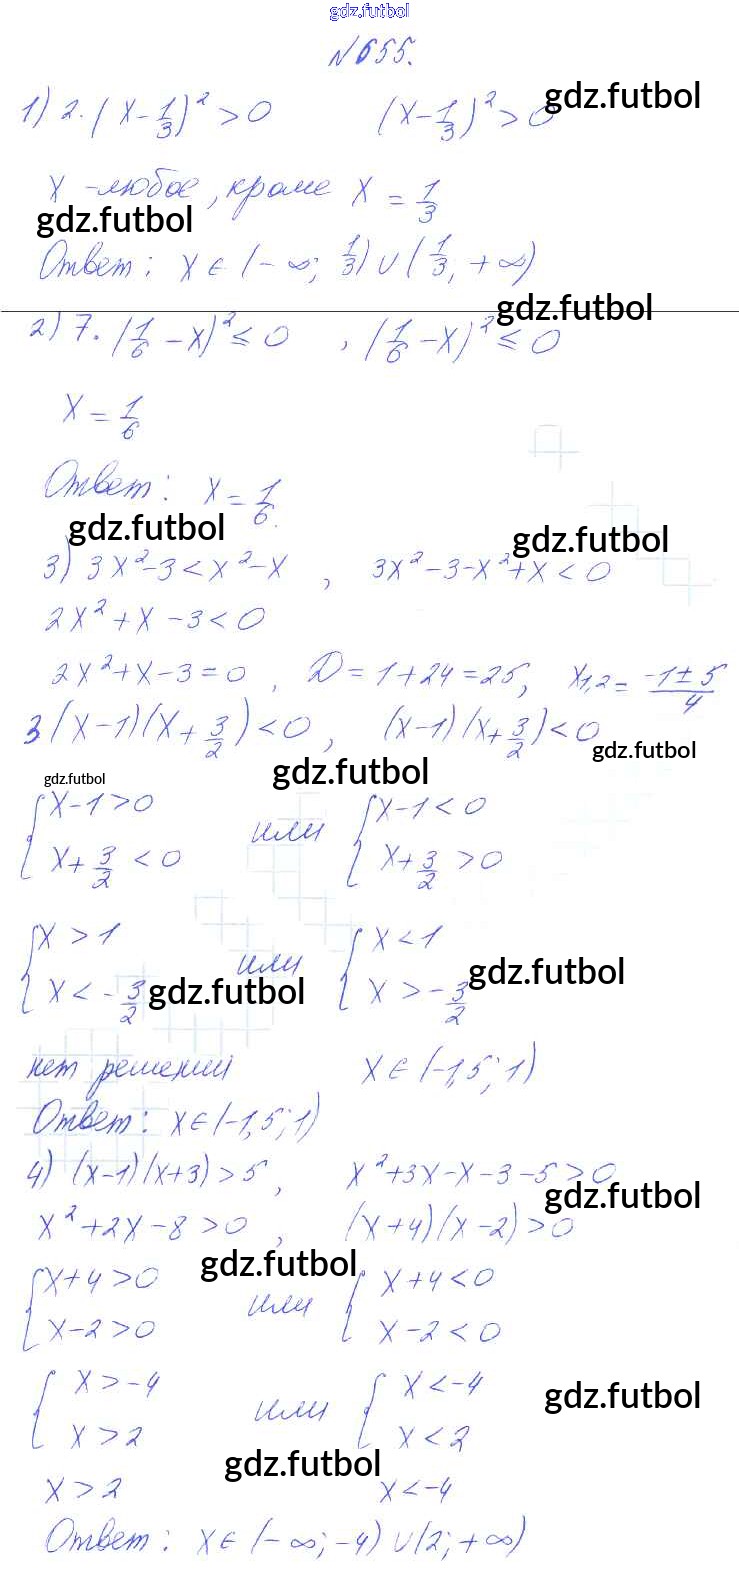 gdz.futbol
№655.
1) 2·(x-1/3)² > 0 (x-1/3)² > 0 gdz.futbol
x - любое, кроме x = 1/3
gdz.futbol
Ответ: x ∈ (-∞; 1/3) ∪ (1/3; +∞)
gdz.futbol
2) 7·(1/6 - x)² ≤ 0 , (1/6 - x)² ≤ 0
x = 1/6
Ответ: x = 1/6.
gdz.futbol gdz.futbol
3) 3x²-3 < x²-x , 3x²-3-x²+x < 0
2x²+x-3 < 0
2x²+x-3 = 0 , D = 1+24 = 25, x1,2 = (-1±5)/4
3(x-1)(x+3/2) < 0 , (x-1)(x+3/2) < 0
gdz.futbol
gdz.futbol gdz.futbol
{ x-1 > 0 или { x-1 < 0
x+3/2 < 0 x+3/2 > 0
{ x > 1 или { x < 1
x < -3/2 gdz.futbol x > -3/2 gdz.futbol
нет решений x ∈ (-1,5; 1)
Ответ: x ∈ (-1,5; 1)
4) (x-1)(x+3) > 5 , x²+3x-x-3-5 > 0
gdz.futbol
x²+2x-8 > 0 , (x+4)(x-2) > 0
gdz.futbol
{ x+4 > 0 или { x+4 < 0
x-2 > 0 x-2 < 0
{ x > -4 или { x < -4 gdz.futbol
x > 2 x < 2
gdz.futbol
x > 2 x < -4
Ответ: x ∈ (-∞; -4) ∪ (2; +∞)